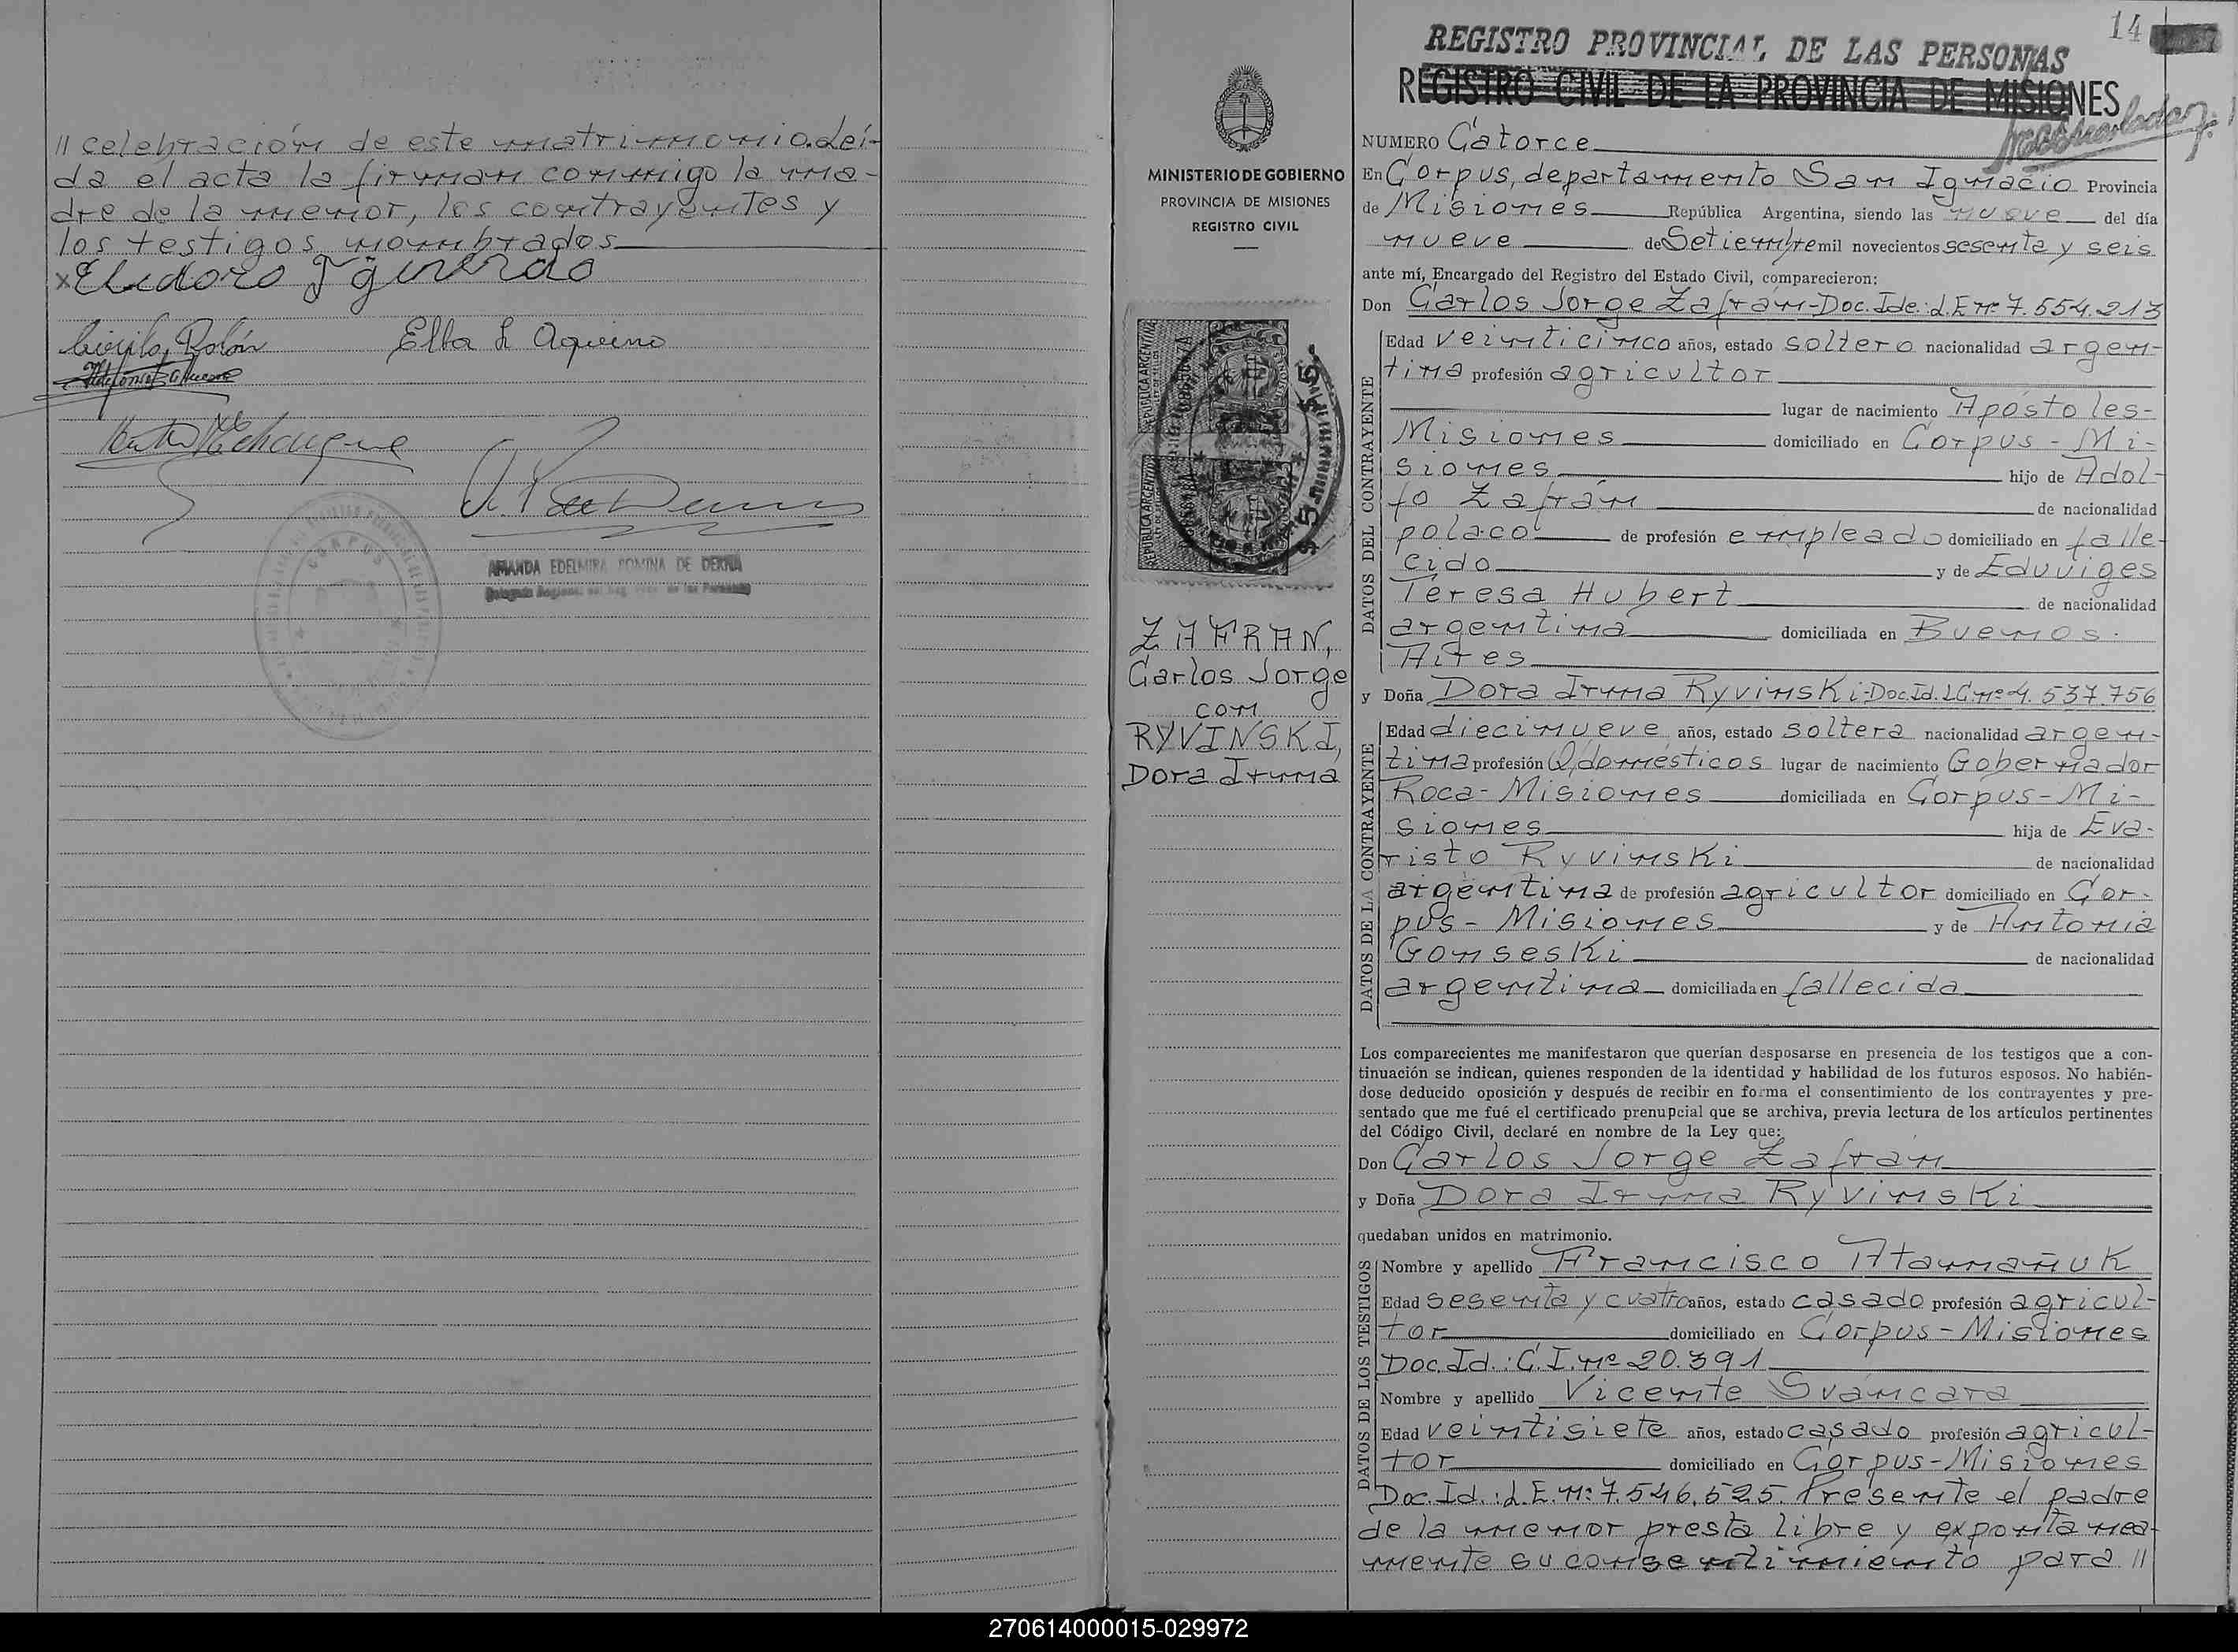 // celebración de este matrimonio. Leí-
da el acta la firman conmigo la ma-
dre de la menor, los contrayentes y
los testigos nombrados
Ella L Aquino
AMANDA EDELMIRA ROMINA DE DERNA
CORPUS
MINISTERIO DE GOBIERNO
PROVINCIA DE MISIONES
REGISTRO CIVIL
REPUBLICA ARGENTINA
REPUBLICA ARGENTINA
ZAFRAN,
Carlos Jorge
con
RYVINSKI,
Dora Irma
14
REGISTRO PROVINCIAL DE LAS PERSONAS
REGISTRO CIVIL DE LA PROVINCIA DE MISIONES
NUMERO Catorce
En Corpus, departamento San Ignacio Provincia
de Misiones República Argentina, siendo las nueve del día
nueve de Setiembre mil novecientos sesenta y seis
ante mí, Encargado del Registro del Estado Civil, comparecieron:
Don Carlos Jorge Zafrán-Doc. Ide.: L.E nº 7.554.213
DATOS DEL CONTRAYENTE
Edad veinticinco años, estado soltero nacionalidad argen-
tina profesión agricultor
lugar de nacimiento Apóstoles-
Misiones domiciliado en Corpus-Mi-
siones hijo de Adol-
fo Zafrán de nacionalidad
polaco de profesión empleado domiciliado en falle-
cido y de Eduviges
Teresa Hubert de nacionalidad
argentina domiciliada en Buenos
Aires
y Doña Dora Irma Ryvinski-Doc. Id. L.C nº 4.537.756
DATOS DE LA CONTRAYENTE
Edad diecinueve años, estado soltera nacionalidad argen-
tina profesión Q. domésticos lugar de nacimiento Gobernador
Roca-Misiones domiciliada en Corpus-Mi-
siones hija de Eva-
risto Ryvinski de nacionalidad
argentina de profesión agricultor domiciliado en Cor-
pus-Misiones y de Antonia
Gonseski de nacionalidad
argentina domiciliada en fallecida
Los comparecientes me manifestaron que querían desposarse en presencia de los testigos que a con-
tinuación se indican, quienes responden de la identidad y habilidad de los futuros esposos. No habién-
dose deducido oposición y después de recibir en forma el consentimiento de los contrayentes y pre-
sentado que me fué el certificado prenupcial que se archiva, previa lectura de los artículos pertinentes
del Código Civil, declaré en nombre de la Ley que:
Don Carlos Jorge Zafrán
y Doña Dora Irma Ryvinski
quedaban unidos en matrimonio.
DATOS DE LOS TESTIGOS
Nombre y apellido Francisco Atamañuk
Edad sesenta y cuatro años, estado casado profesión agricul-
tor domiciliado en Corpus-Misiones
Doc. Id.: C.I. nº 20.391
Nombre y apellido Vicente Svancara
Edad veintisiete años, estado casado profesión agricul-
tor domiciliado en Corpus-Misiones
Doc. Id.: L.E. nº 7.546.525. Presente el padre
de la menor presta libre y expontanea-
mente su consentimiento para //
270614000015-029972